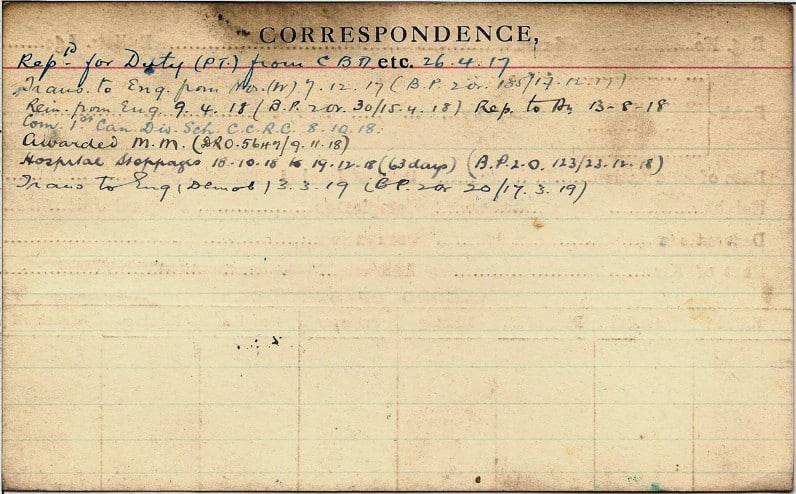 CORRESPONDENCE,
Rep'd for Duty (P.T.) from C B D etc. 26.4.17
Trans. to Eng. from (W) 7.12.17 (B.P. 2 or. 135/17.12.17)
Rein. from Eng. 9.4.18 (B.P. 2 or. 30/15.4.18) Rep. to Bn 13-8-18
Com. 1st Can. Dis. Sch. C.C.R.C. 8.10.18.
Awarded M.M. (DRO.5647/9.11.18)
Hospital Stoppages 18-10-18 to 19-12-18 (63 days) (B.P.2.O. 123/23.12.18)
Trans to Eng (Demob) 3.3.19 (B.P. 2 or 20/17.3.19)